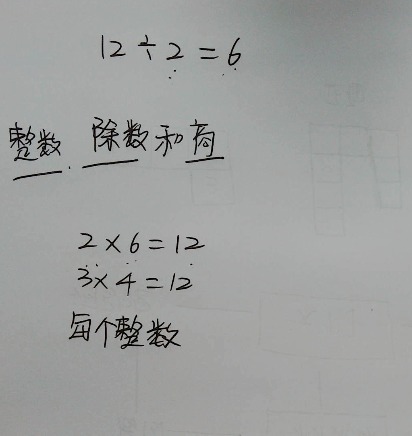 12÷2=6
整数. 除数和商
2×6=12
3×4=12
每个整数